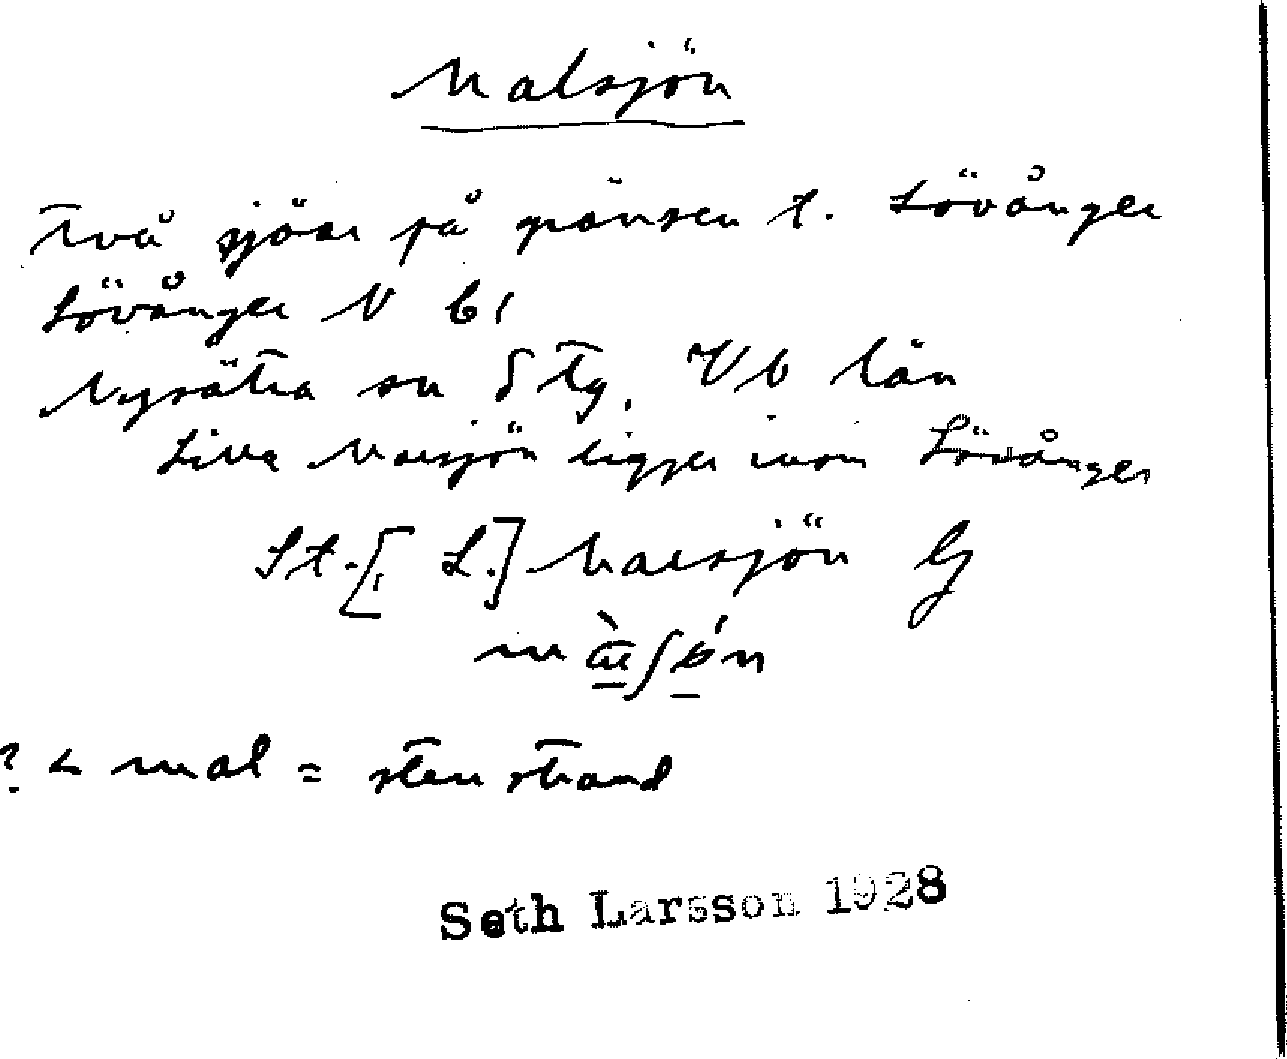 Malsjön
Två sjöar på gränsen t. Lövånger
Lövånger N b1
Nysätra sn S Tg, Vb län
Lilla Malsjön ligger inom Lövånger
St. [, L.] Malsjön G
? < mal = stenstrand
Seth Larsson 1928